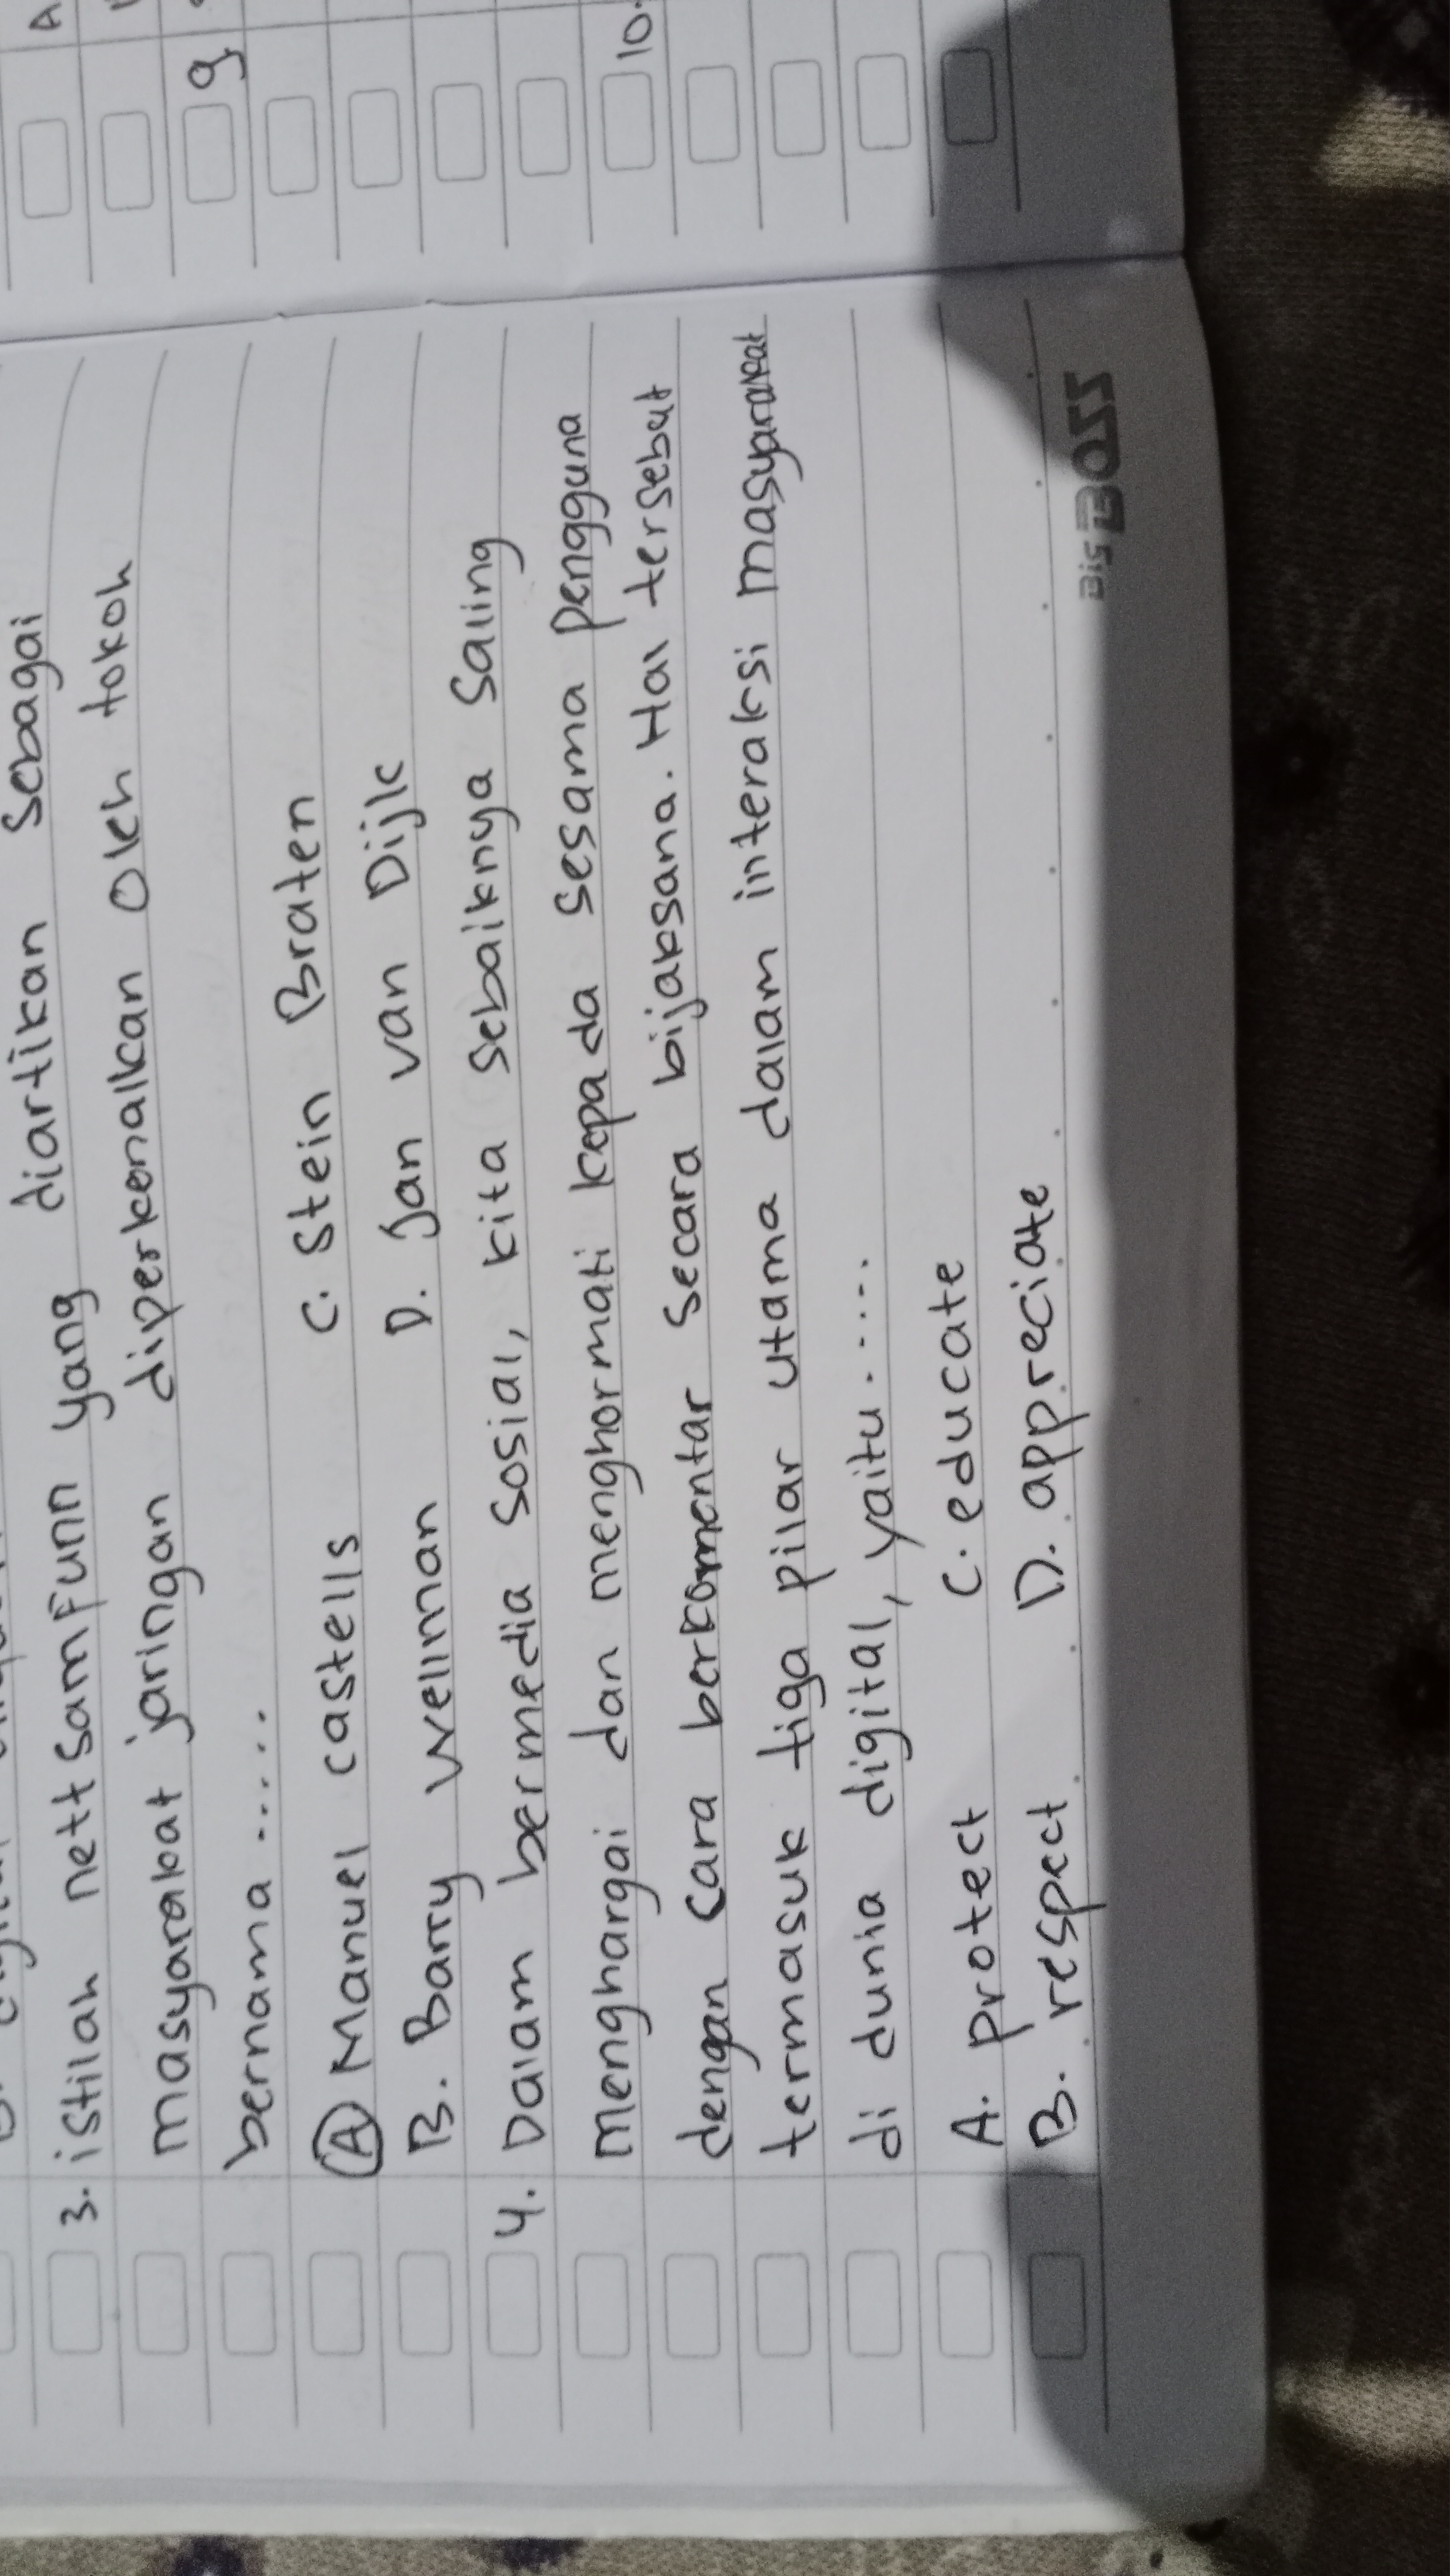 diartikan Sebagai
3. istilah nettsamfunn yang
masyarakat jaringan diperkenalkan Oleh tokoh
bernama ......
A Manuel castells C. Stein Braten
B. Barry Wellman D. Jan van Dijk
4. Dalam bermedia sosial, kita sebaiknya Saling
Menghargai dan menghormati kepada sesama pengguna
dengan cara berkomentar Secara bijaksana. Hal tersebut
termasuk tiga pilar utama dalam interaksi masyarakat
di dunia digital, yaitu.....
A. protect C. educate
B. respect D. appreciate
Big BOSS
A
9
10.